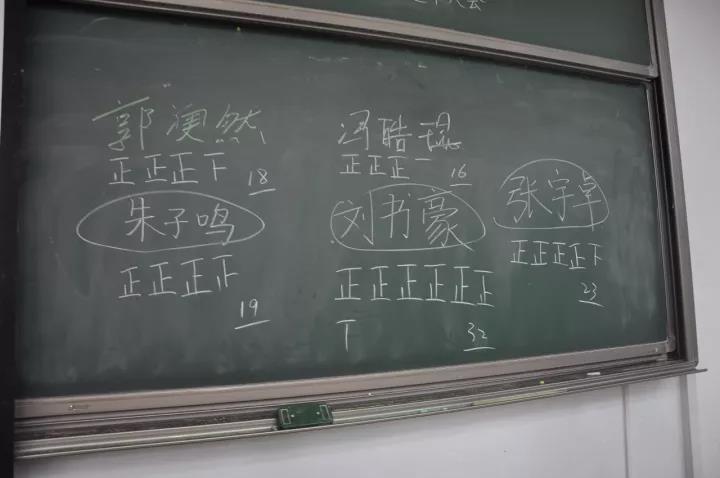 大会
郭澳然
正正正下
18
朱子鸣
正正正正
19
冯皓
正正正一
16
刘书豪
正正正正正正
丅
32
张宇卓
正正正正下
23